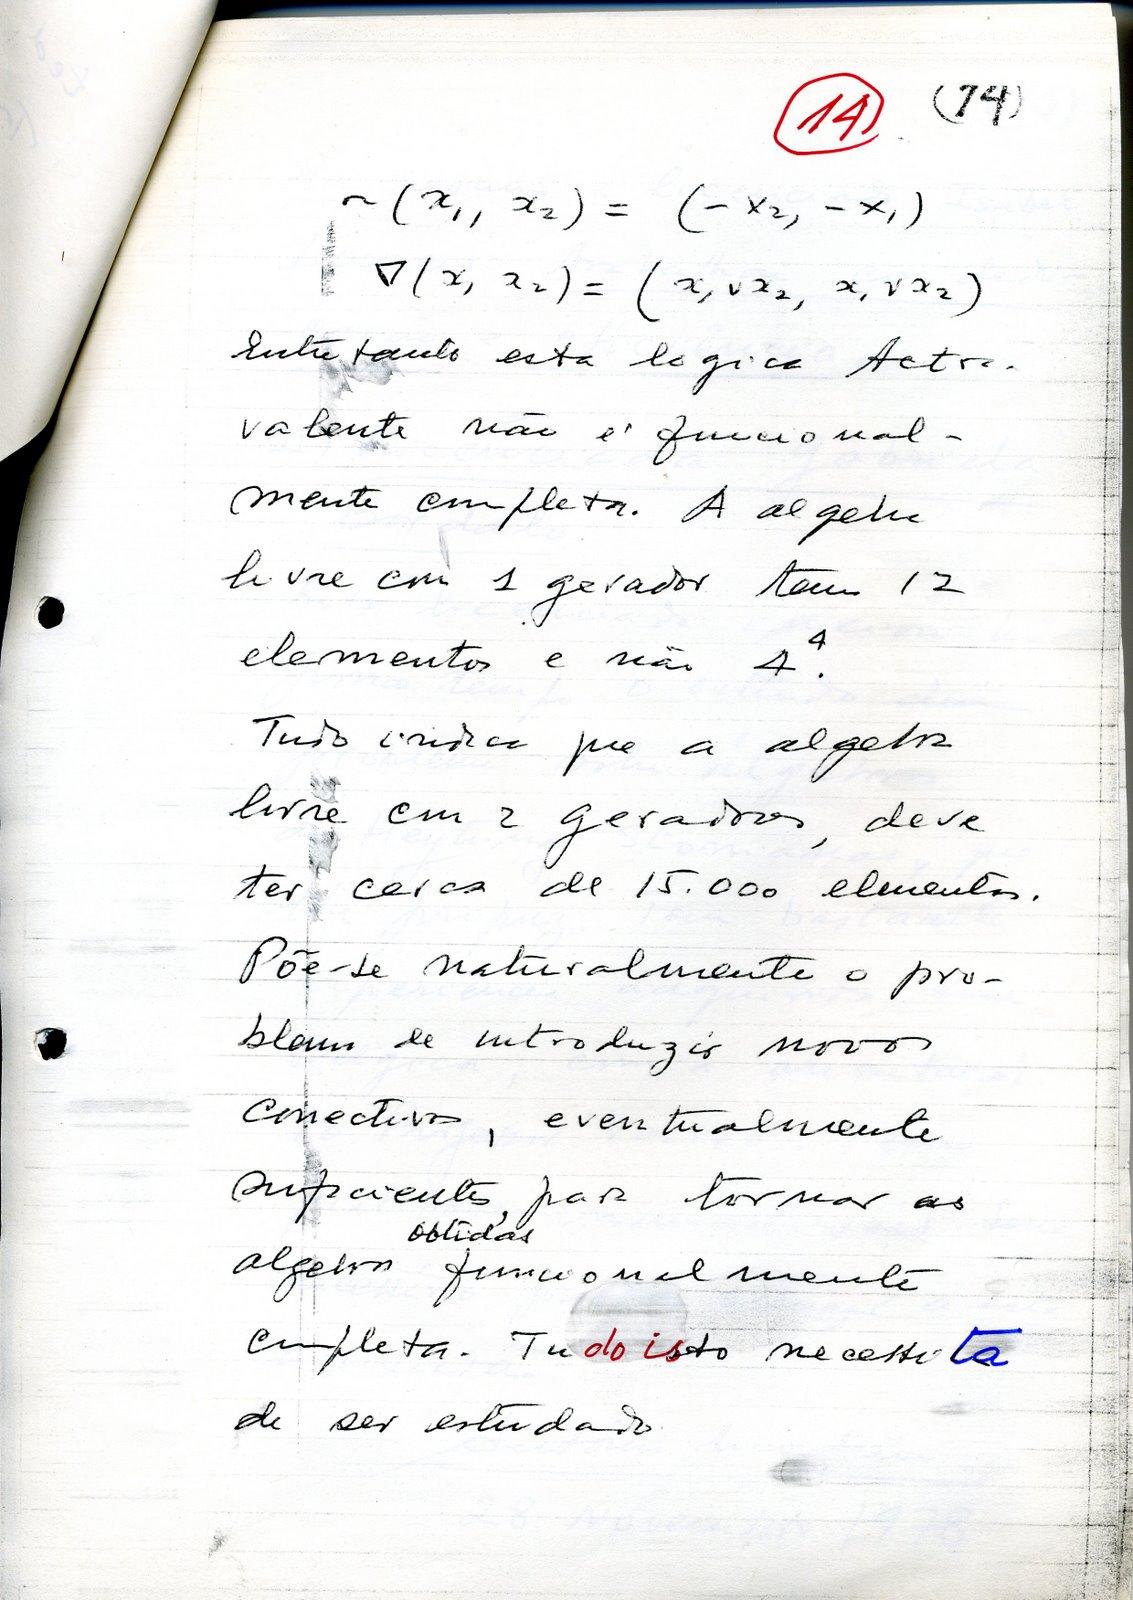 14 (74)
~(x₁, x₂) = (-x₂, -x₁)
∇(x₁ x₂) = (x₁ v x₂, x₁ v x₂)
Entretanto esta logica tetra-
valente não é funcional-
mente completa. A algebra
livre com 1 gerador tem 12
elementos e não 4⁴.
Tudo indica que a algebra
livre com 2 geradores, deve
ter cerca de 15.000 elementos.
Põe-se naturalmente o pro-
blema de introduzir novos
conectivos, eventualmente
suficientes, para tornar as
algebras obtidas funcionalmente
completa. Tudo isto necessita
de ser estudado